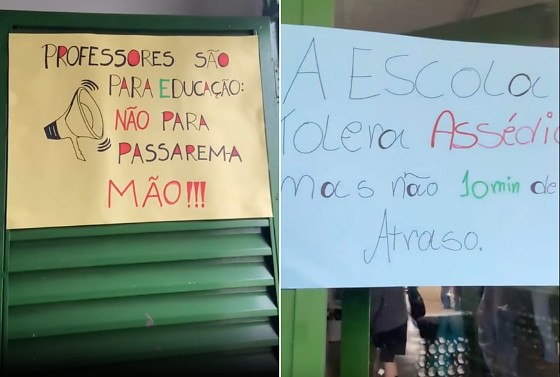 PROFESSORES SÃO
PARA EDUCAÇÃO:
NÃO PARA
PASSAREM-A
MÃO!!!
A ESCOLA
Tolera Assédio
mas não 10min de
Atraso.